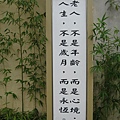 老人，不是年齡，而是心境，
人生，不是歲月，而是永恆